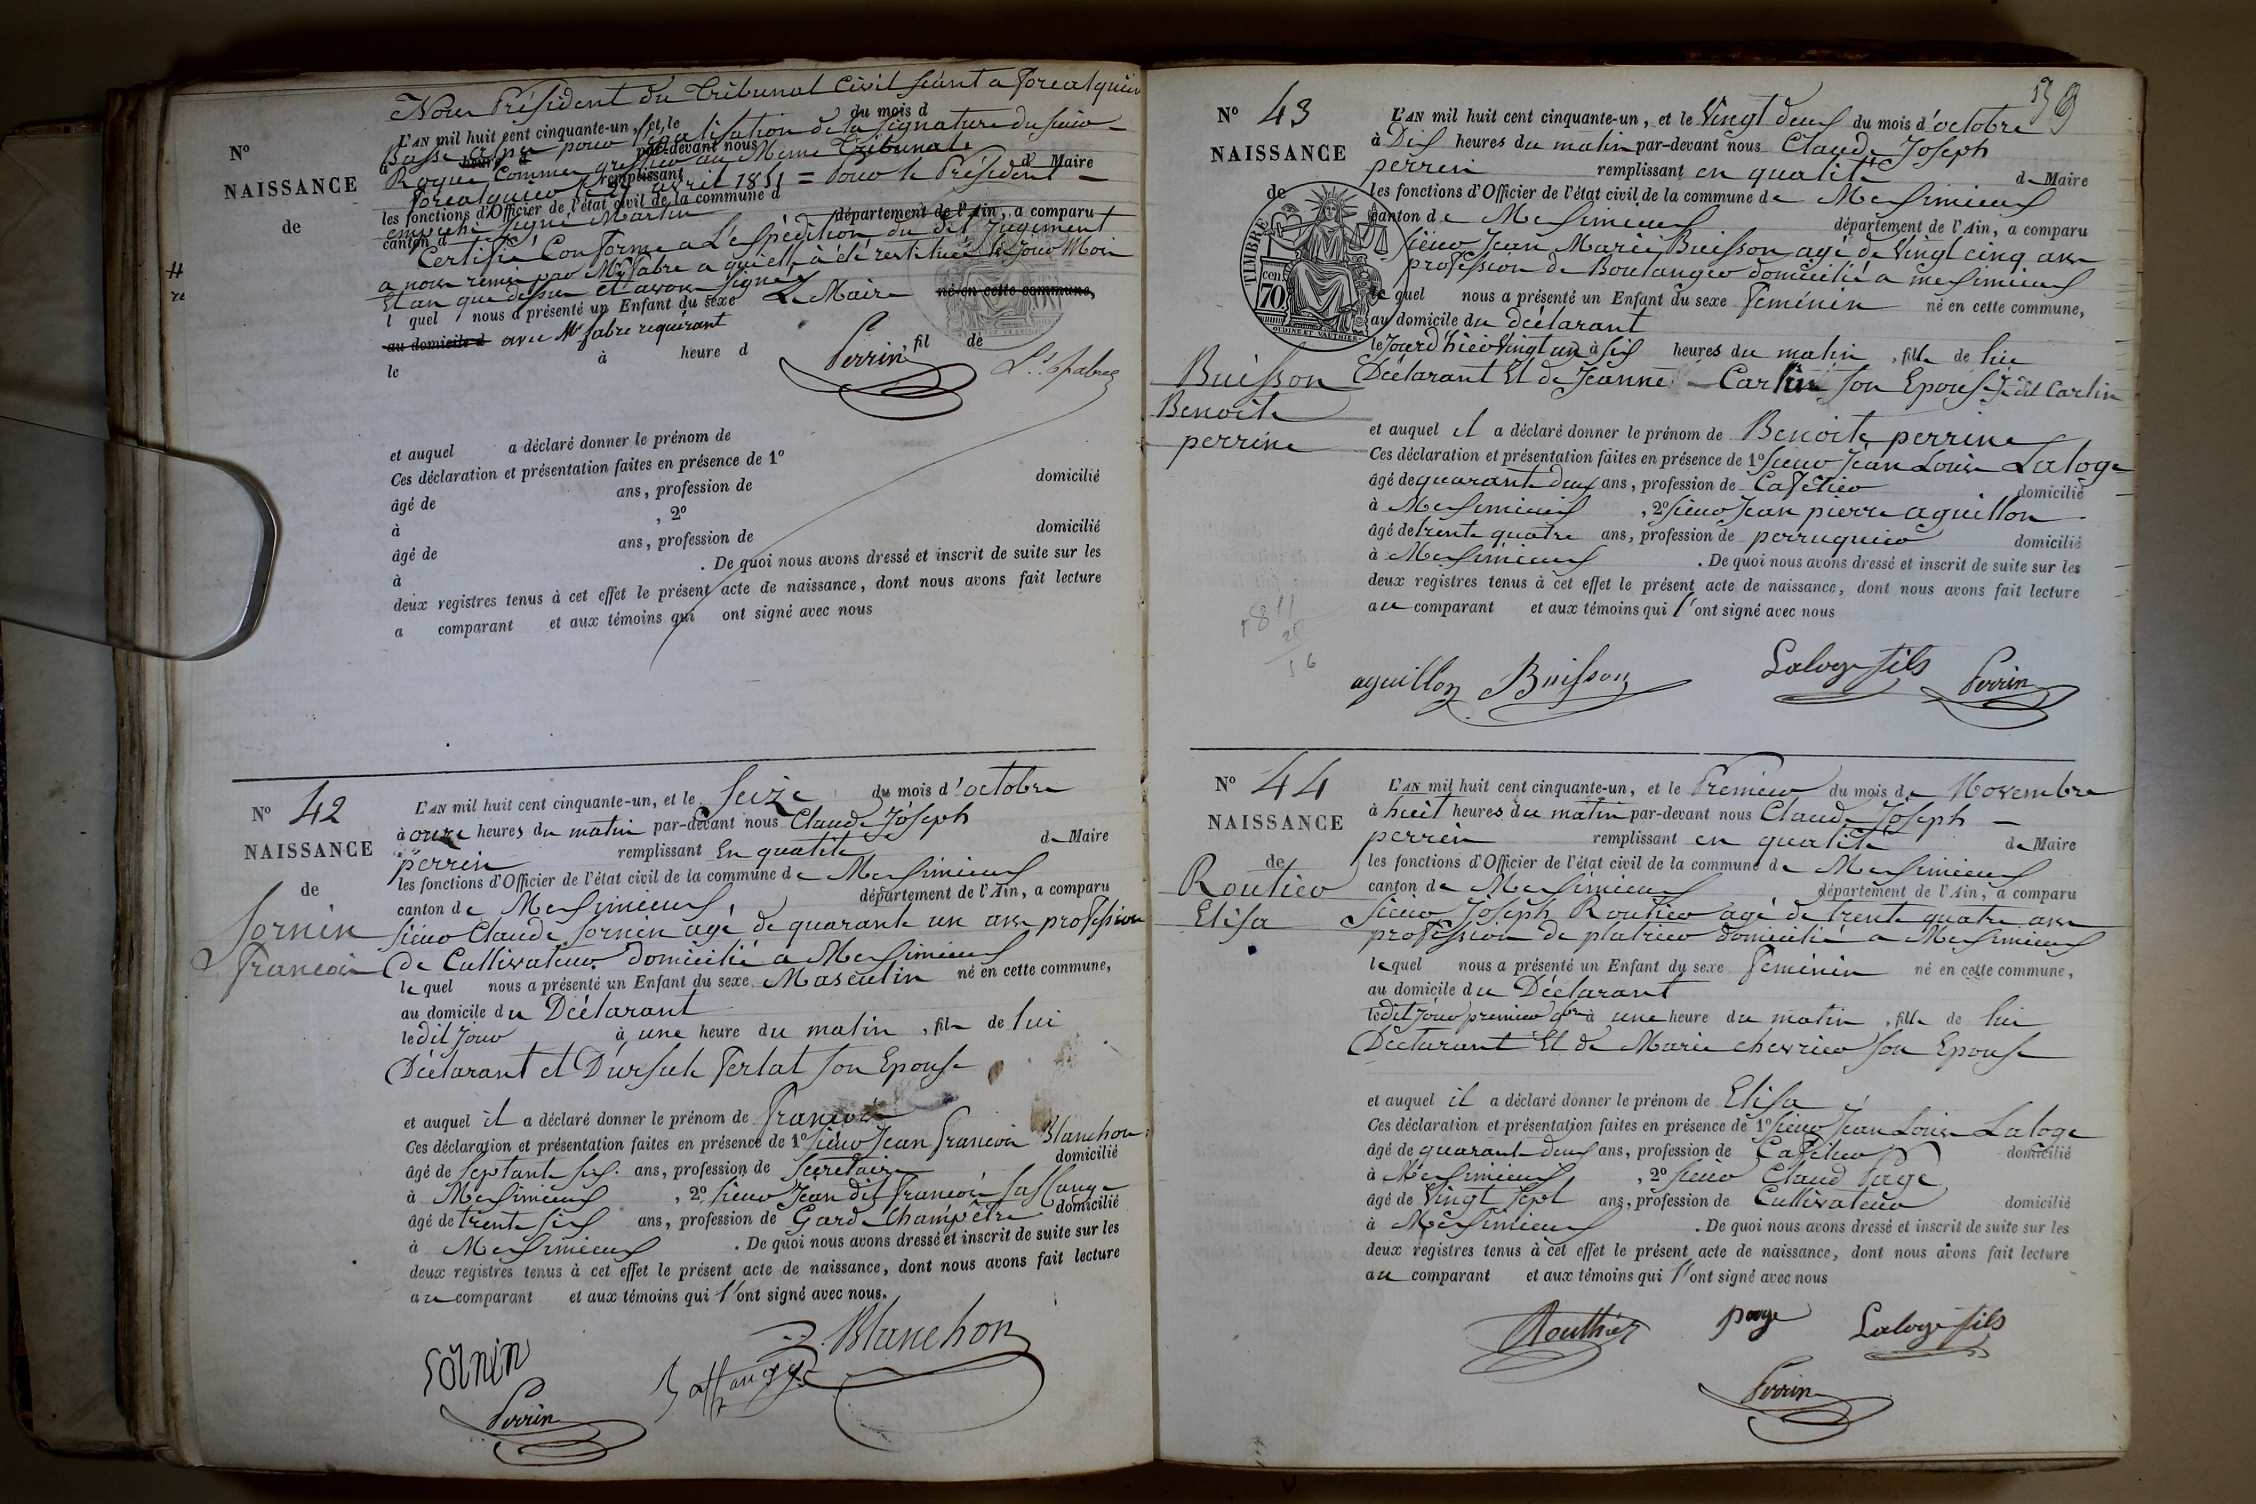 Nous Président du Tribunal Civil séant a Forcalquier
L'AN mil huit cent cinquante-un, et le du mois d
pour légalisation de la signature du sieur
à heure d par-devant nous
Roque Commis greffier au Même Tribunal
remplissant d Maire
Forcalquier le avril 1851 = Pour le Président
les fonctions d'Officier de l'état civil de la commune d
empeché signé Martin
canton d département de l'Ain, a comparu
Certifié Conforme a L'Expédition du dit Jugement
a nous remis par Mr fabre a qui elle à été restituée le Jour Mois
Et an que dessus et avons signé Le Maire né en cette commune,
l quel nous a présenté un Enfant du sexe
au domicile d avec Mr fabre requérant
le à heure d , fil de
Perrin Ls fabre
et auquel a déclaré donner le prénom de
Ces déclaration et présentation faites en présence de 1º
âgé de ans, profession de domicilié
à , 2º
âgé de ans, profession de domicilié
à . De quoi nous avons dressé et inscrit de suite sur les
deux registres tenus à cet effet le présent acte de naissance, dont nous avons fait lecture
a comparant et aux témoins qui ont signé avec nous
Nº
NAISSANCE
de
Nº 42
NAISSANCE
de
Sornin
francois
L'AN mil huit cent cinquante-un, et le Seize du mois d'octobre
à onze heures du matin par-devant nous Claude Joseph
perrin remplissant En qualité de Maire
les fonctions d'Officier de l'état civil de la commune de Meximieux
canton de Meximieux, département de l'Ain, a comparu
sieur Claude Sornin agé de quarante un ans profession
de Cultivateur domicilié a Meximieux
le quel nous a présenté un Enfant du sexe Masculin né en cette commune,
au domicile du Déclarant
le dit Jour à une heure du matin , fils de lui
Déclarant et D'ursule fertat son Epouse
et auquel il a déclaré donner le prénom de francois
Ces déclaration et présentation faites en présence de 1º sieur Jean francois Blanchon
âgé de septante six ans, profession de Secretaire domicilié
à Meximieux , 2º sieur Jean dit francois Saffange
âgé de trente six ans, profession de Garde Champêtre domicilié
à Meximieux . De quoi nous avons dressé et inscrit de suite sur les
deux registres tenus à cet effet le présent acte de naissance, dont nous avons fait lecture
au comparant et aux témoins qui l'ont signé avec nous.
Sornin Saffange Blanchon
Perrin
39
Nº 43
NAISSANCE
de
TIMBRE
70
cen
Buisson
Benoite
perrine
L'AN mil huit cent cinquante-un, et le Vingt deux du mois d'octobre
à Dix heures du matin par-devant nous Claude Joseph
perrin remplissant en qualité de Maire
les fonctions d'Officier de l'état civil de la commune de Meximieux
canton de Meximieux département de l'Ain, a comparu
sieur Jean Marie Buisson agé de Vingt cinq ans
profession de Boulanger domicilié a meximieux
le quel nous a présenté un Enfant du sexe feminin né en cette commune,
au domicile du déclarant
le Jourd'hier Vingt un à six heures du matin , fille de lui
Déclarant Et de Jeanne Carlin son Epouse, dit Carlin
et auquel il a déclaré donner le prénom de Benoite perrine
Ces déclaration et présentation faites en présence de 1º sieur Jean Louis Laloge
âgé de quarante deux ans, profession de Cafetier domicilié
à Meximieux , 2º sieur Jean pierre aguillon
âgé de trente quatre ans, profession de perruquier domicilié
à Meximieux . De quoi nous avons dressé et inscrit de suite sur les
deux registres tenus à cet effet le présent acte de naissance, dont nous avons fait lecture
au comparant et aux témoins qui l'ont signé avec nous
aguillon Buisson Laloge fils Perrin
Nº 44
NAISSANCE
de
Routier
Elisa
L'AN mil huit cent cinquante-un, et le Premier du mois de Novembre
à huit heures du matin par-devant nous Claude Joseph
perrin remplissant en qualité de Maire
les fonctions d'Officier de l'état civil de la commune de Meximieux
canton de Meximieux département de l'Ain, a comparu
sieur Joseph Routier agé de trente quatre ans
profession de platrier domicilié a Meximieux
le quel nous a présenté un Enfant du sexe feminin né en cette commune,
au domicile du Déclarant
le dit Jour premier 9bre à une heure du matin , fille de lui
Déclarant Et de Marie chevrier son Epouse
et auquel il a déclaré donner le prénom de Elisa
Ces déclaration et présentation faites en présence de 1º sieur Jean Louis Laloge
âgé de quarante deux ans, profession de Cafetier domicilié
à Meximieux , 2º sieur Claud Page
âgé de Vingt sept ans, profession de Cultivateur domicilié
à Meximieux . De quoi nous avons dressé et inscrit de suite sur les
deux registres tenus à cet effet le présent acte de naissance, dont nous avons fait lecture
au comparant et aux témoins qui l'ont signé avec nous
Routhier page Laloge fils
Perrin